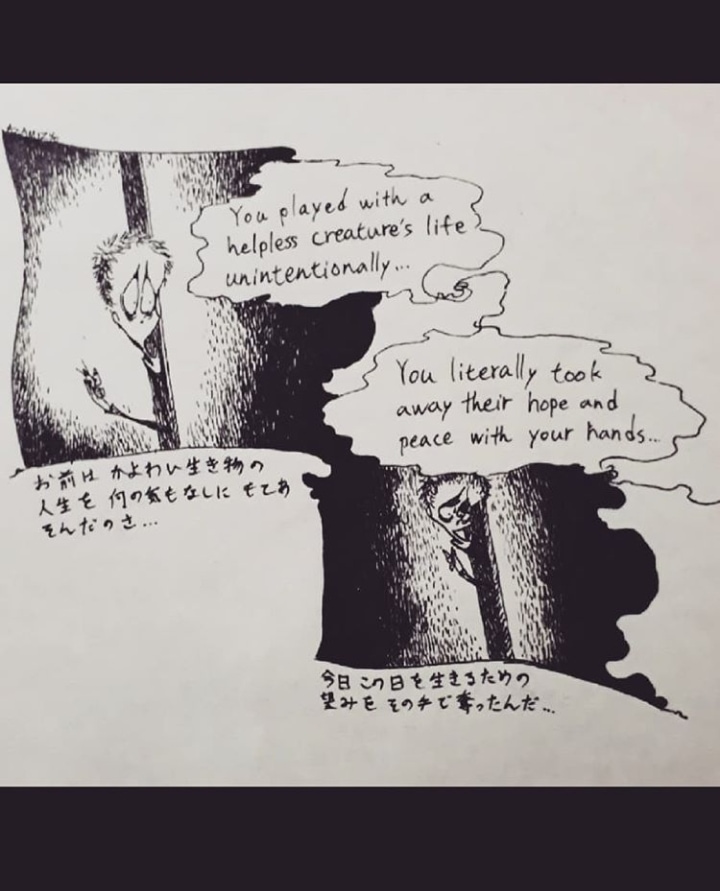 You played with a
helpless creature's life
unintentionally...
You literally took
away their hope and
peace with your hands...
お前は かよわい生き物の
人生を 何の気もなしに もてあ
そんだのさ...
今日 この日を生きるための
望みを その手で奪ったんだ...